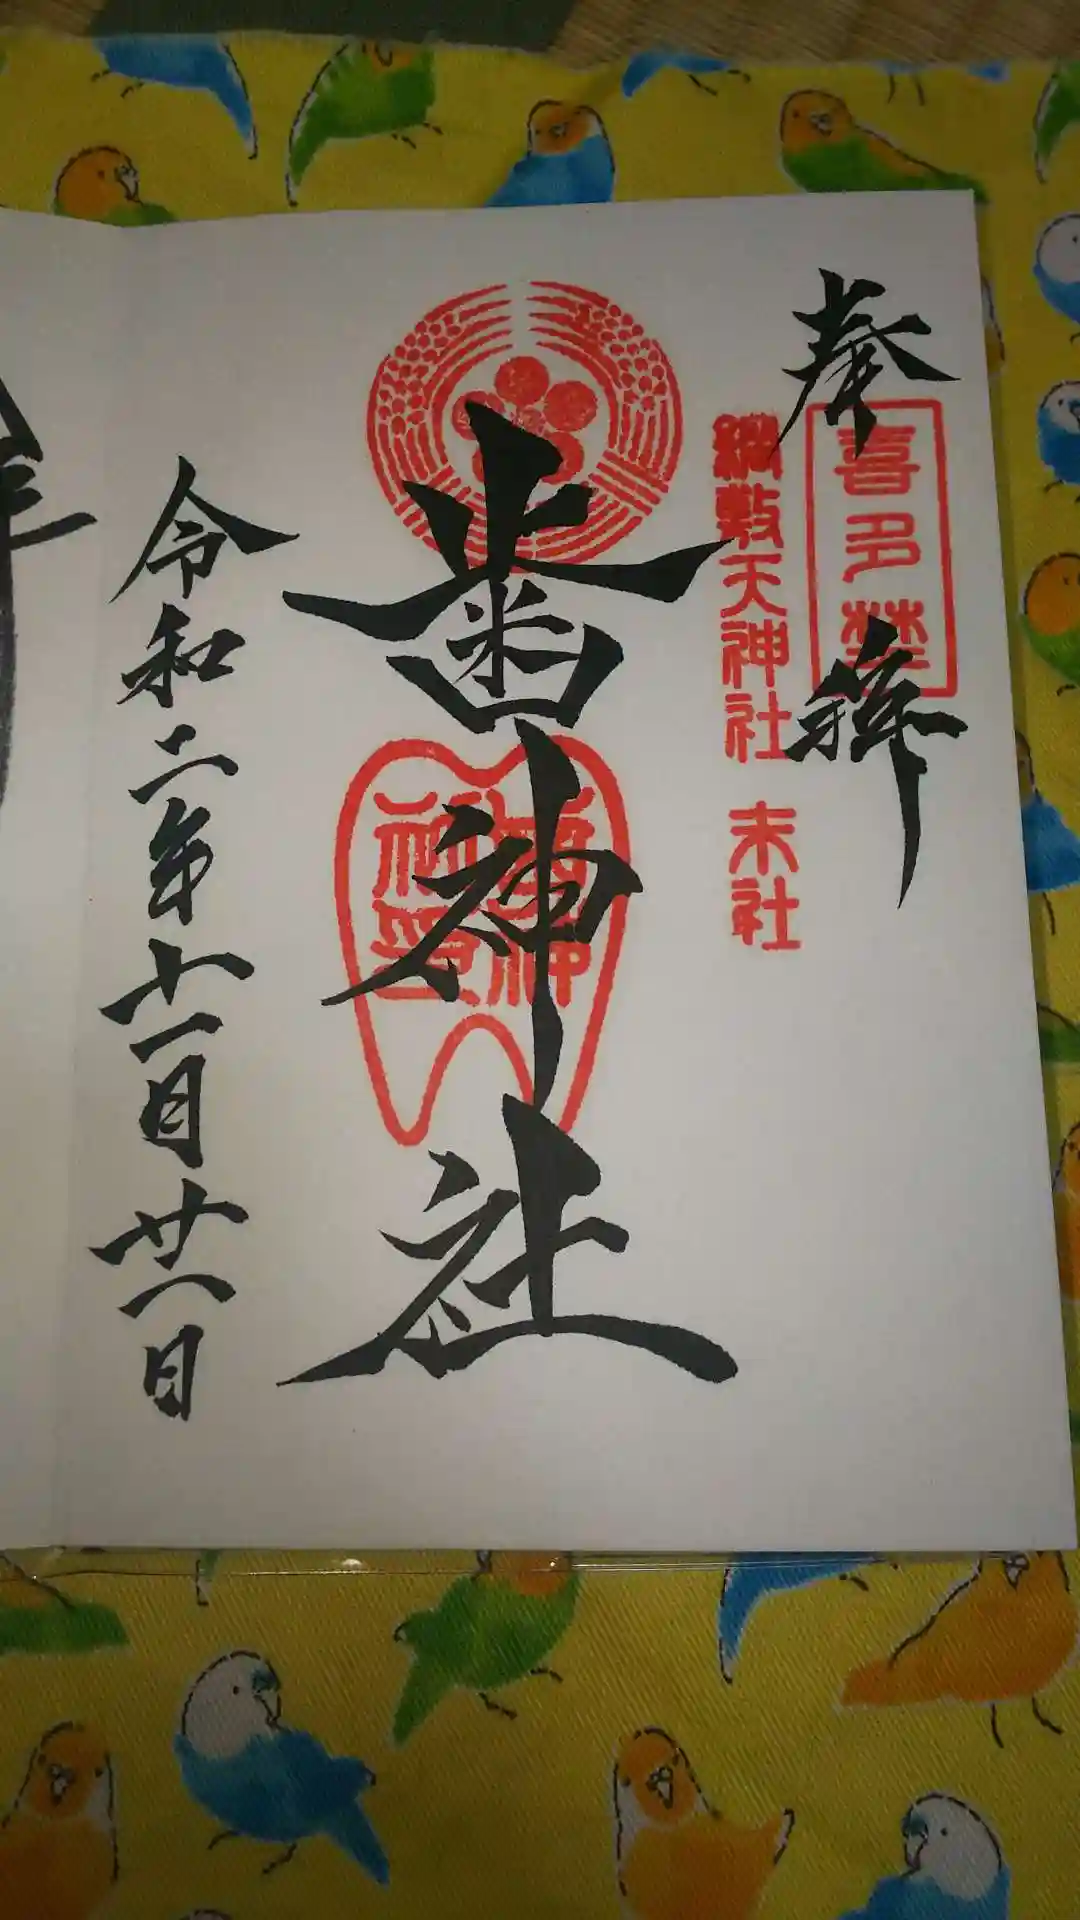 奉拝
喜多埜
綱敷天神社 末社
歯神社
歯神社印
令和二年十一月廿一日